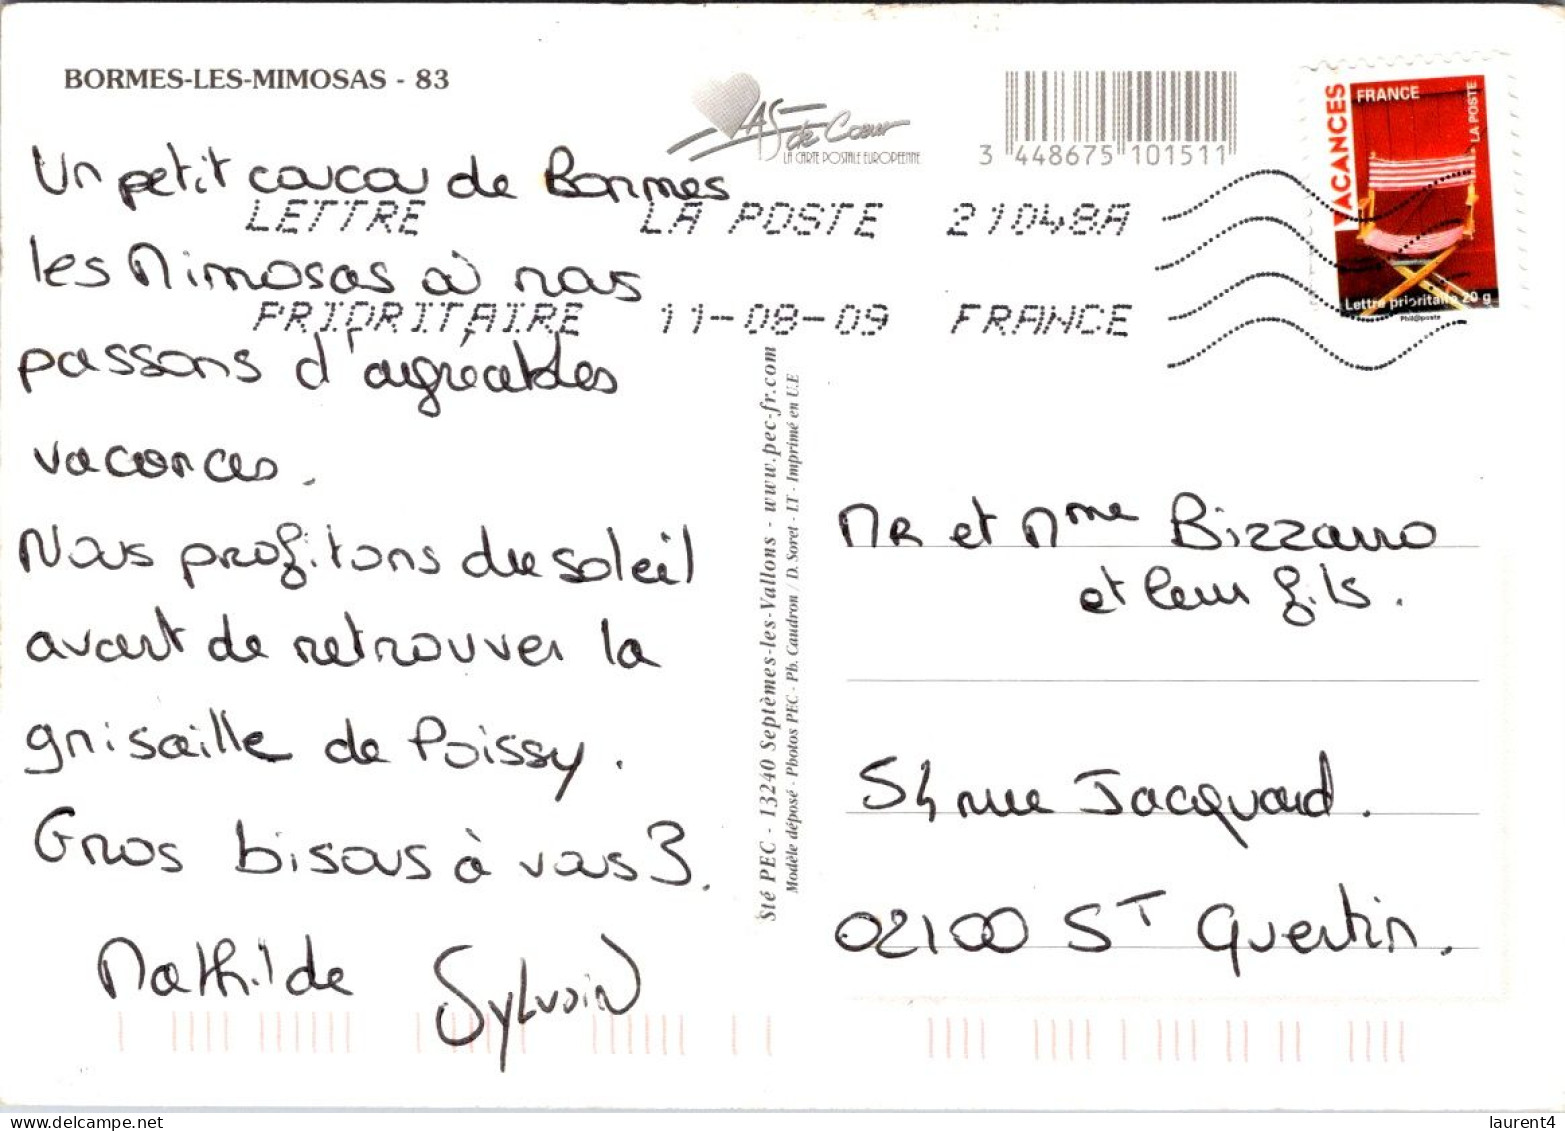 BORMES-LES-MIMOSAS - 83
AS de Cœur
LA CARTE POSTALE EUROPEENNE
3 448675 101511
VACANCES
FRANCE
LA POSTE
Lettre prioritaire 20 g
Phil@poste
LETTRE LA POSTE 21048A
PRIORITAIRE 11-08-09 FRANCE
Un petit coucou de Bormes
les Mimosas où nous
passons d'agréables
vacances.
Nous profitons du soleil
avant de retrouver la
grisaille de Poissy.
Gros bisous à vous 3.
Mathilde Sylvain
Sté PEC - 13240 Septèmes-les-Vallons - www.pec-fr.com
Modèle déposé - Photos PEC - Ph. Caudron / D. Soret - I.T - Imprimé en U.E
MR et Mme Bizzarro
et leur fils.
54 rue Jacquard.
02100 ST Quentin.
delcampe.net
laurent4